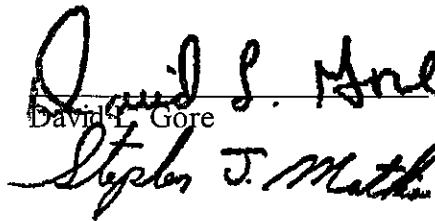 David L. Gore
David L. Gore
Stephen J. Mathi